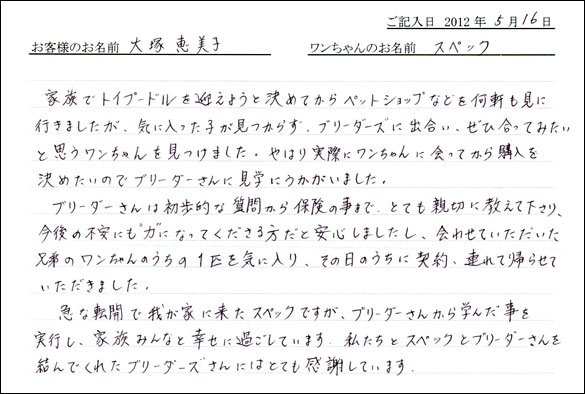 ご記入日 2012年 5月16日
お客様のお名前 大塚恵美子 ワンちゃんのお名前 スペック
家族でトイプードルを迎えようと決めてからペットショップなどを何軒も見に
行きましたが、気に入った子が見つからず、ブリーダーズに出合い、ぜひ会ってみたい
と思うワンちゃんを見つけました。やはり実際にワンちゃんに会ってから購入を
決めたいのでブリーダーさんに見学にうかがいました。
ブリーダーさんは初歩的な質問から保険の事まで、とても親切に教えて下さり、
今後の不安にも"力"になってくださる方だと安心しましたし、会わせていただいた
兄弟のワンちゃんのうちの1匹を気に入り、その日のうちに契約、連れて帰らせて
いただきました。
急な転開で我が家に来たスペックですが、ブリーダーさんから学んだ事を
実行し、家族みんなと幸せに過ごしています。私たちとスペックとブリーダーさんを
結んでくれたブリーダーズさんにはとても感謝しています。